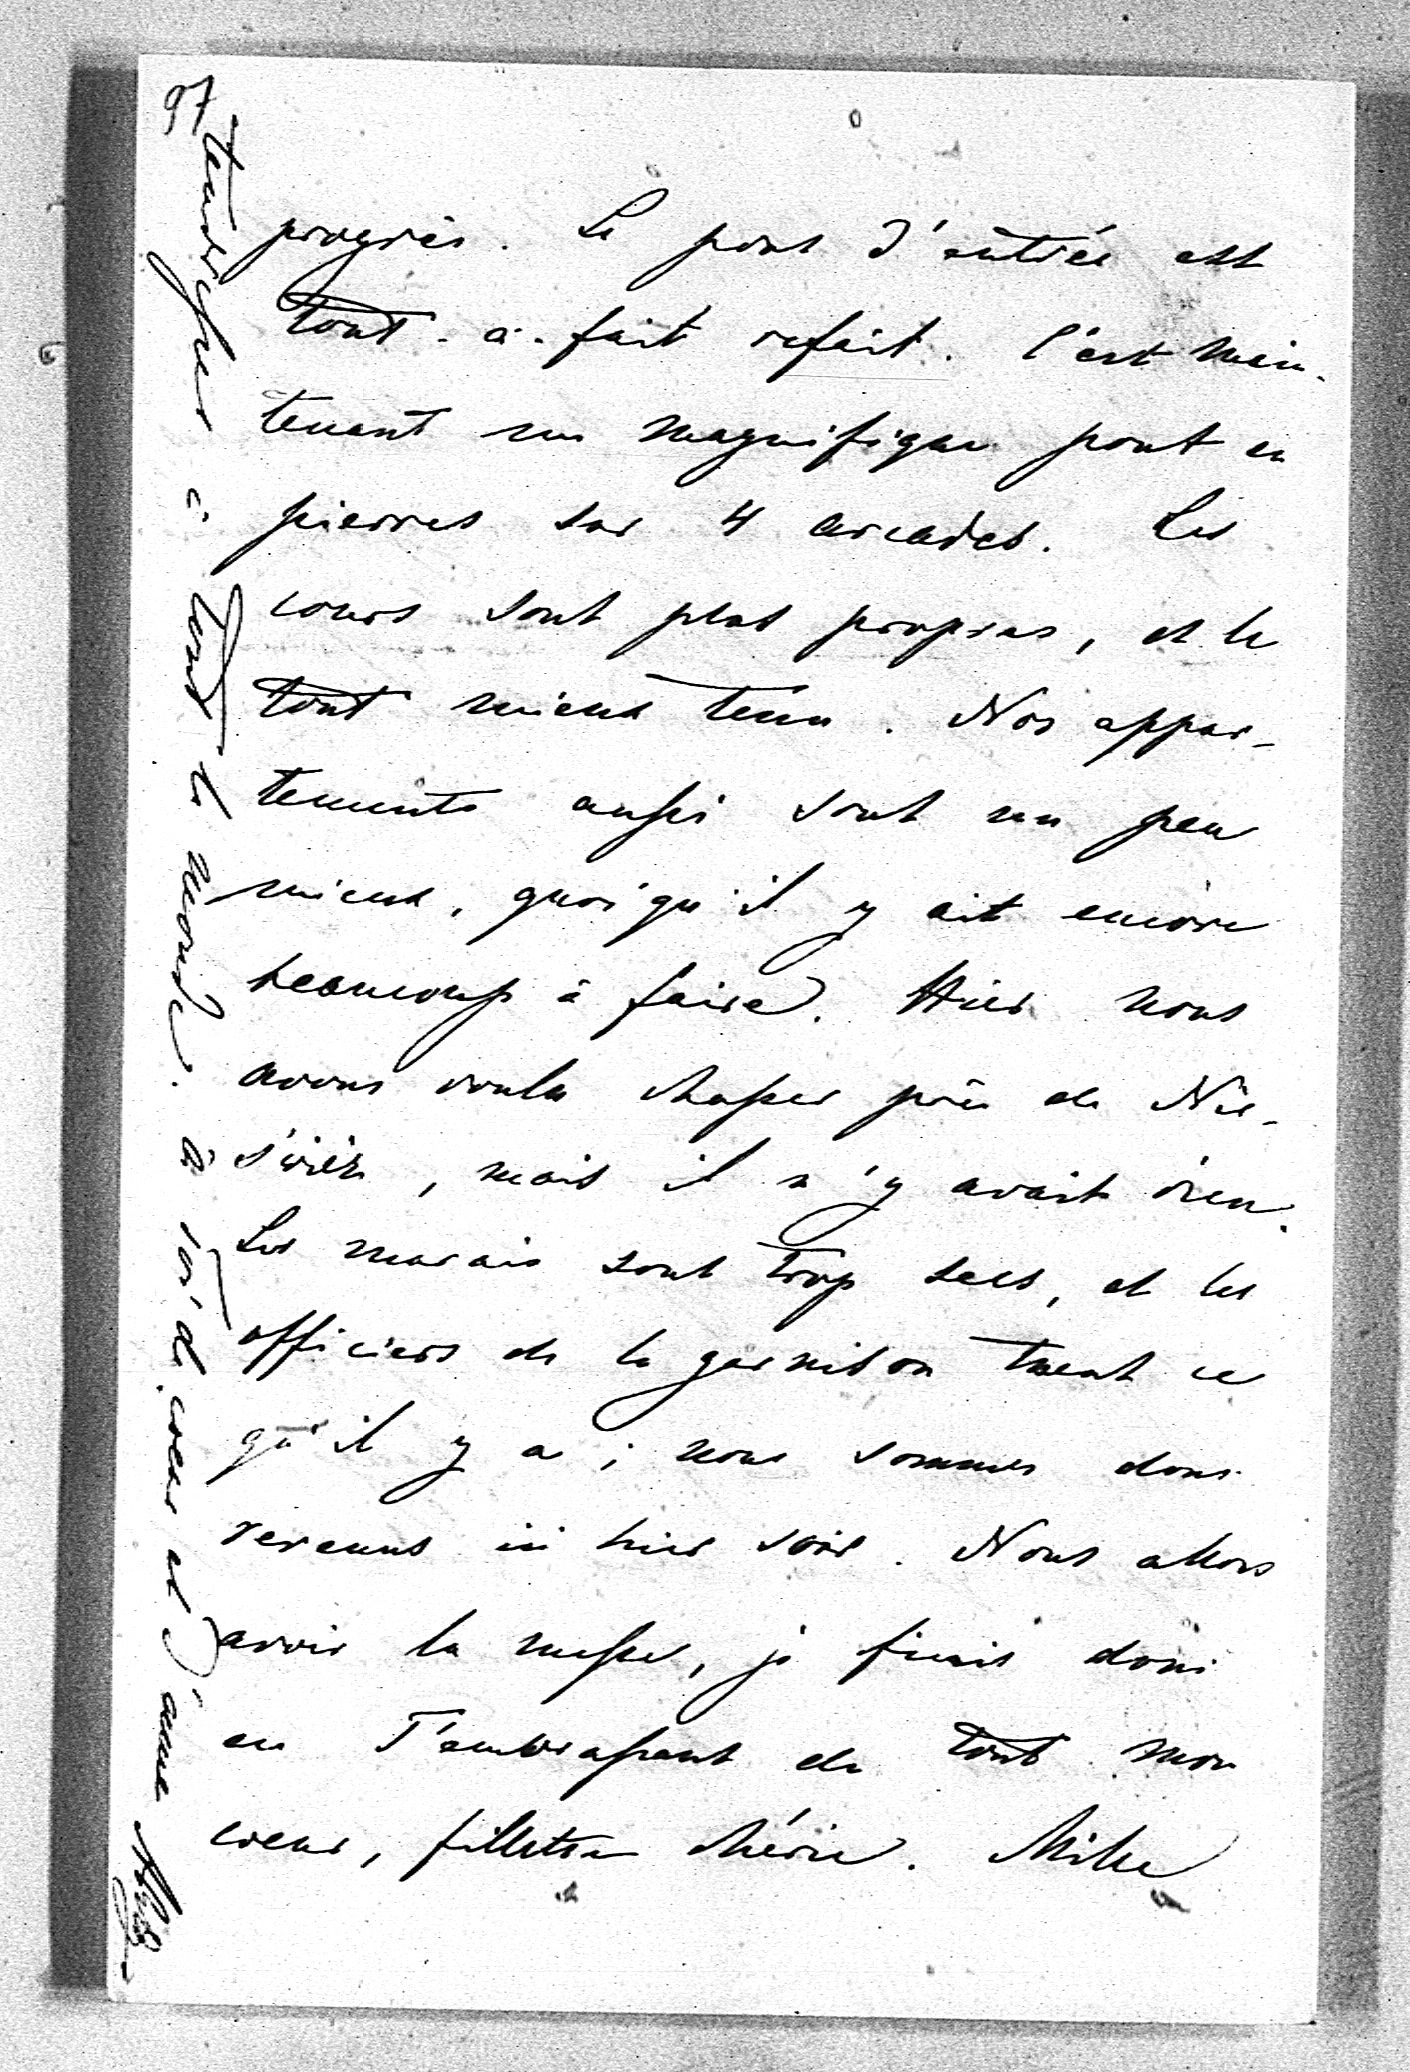 97
progrès. Le pont d'entrée est
tout-à-fait refait. C'est main-
tenant un magnifique pont en
pierres sur 4 arcades. Les
cours sont plus propres, et le
tout mieux tenu. Nos appar-
tements aussi sont un peu
mieux, quoiqu'il y ait encore
beaucoup à faire. Hier nous
avons voulu chasser près de Nie-
śwież, mais il n'y avait rien.
Les marais sont trop secs, et les
officiers de la garnison tuent ce
qu'il y a; nous sommes donc
revenus ici hier soir. Nous allons
avoir la messe, je finis donc
en T'embrassant de tout mon
coeur, fillette chérie. Mille
tendresses à tout le monde. à toi de coeur et d'âme